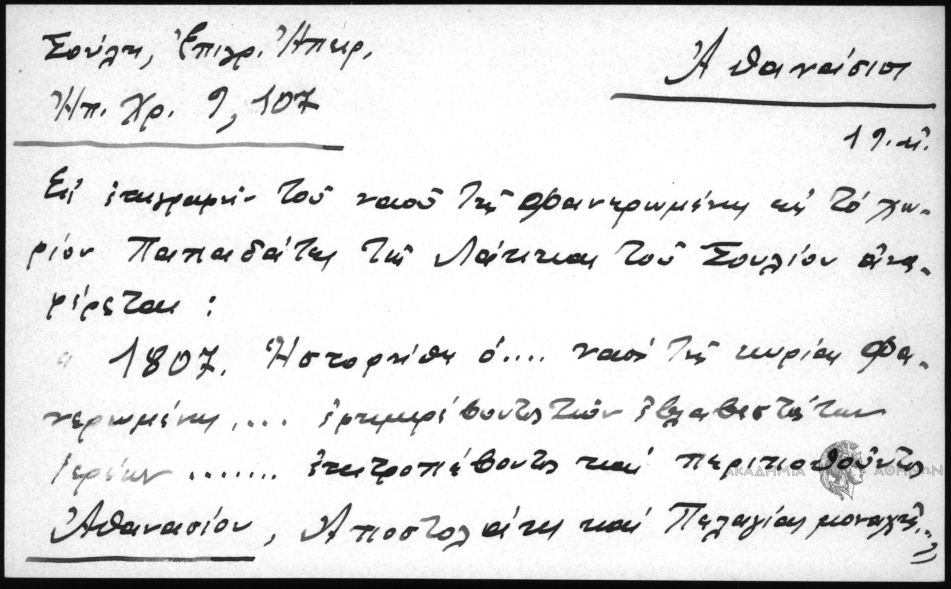 Σούλη, Ἐπιγρ. Ἠπειρ.
Ἠπ. Χρ. 9, 107
Ἀθανάσιος
19. αἰ.
Εἰς ἐπιγραφὴν τοῦ ναοῦ τῆς Φανερωμένης εἰς τὸ χω-
ρίον Παπαδάτες τῆς Λάκκας τοῦ Σουλίου ἀνα-
φέρεται:
" 1807. Ἡστορήθη ὁ.... ναός τῆς κυρίας Φα-
νερωμένης .... ἐφημερέβοντος τῶν ἐβλαβεστάτων
ἱερέων ....... ἐπιτροπέβοντος καὶ περικαθοῦντος
Ἀθανασίου, Ἀποστολάκη καὶ Πελαγίας μοναχῆς.."
ΑΚΑΔΗΜΙΑ ΑΘΗΝΩΝ